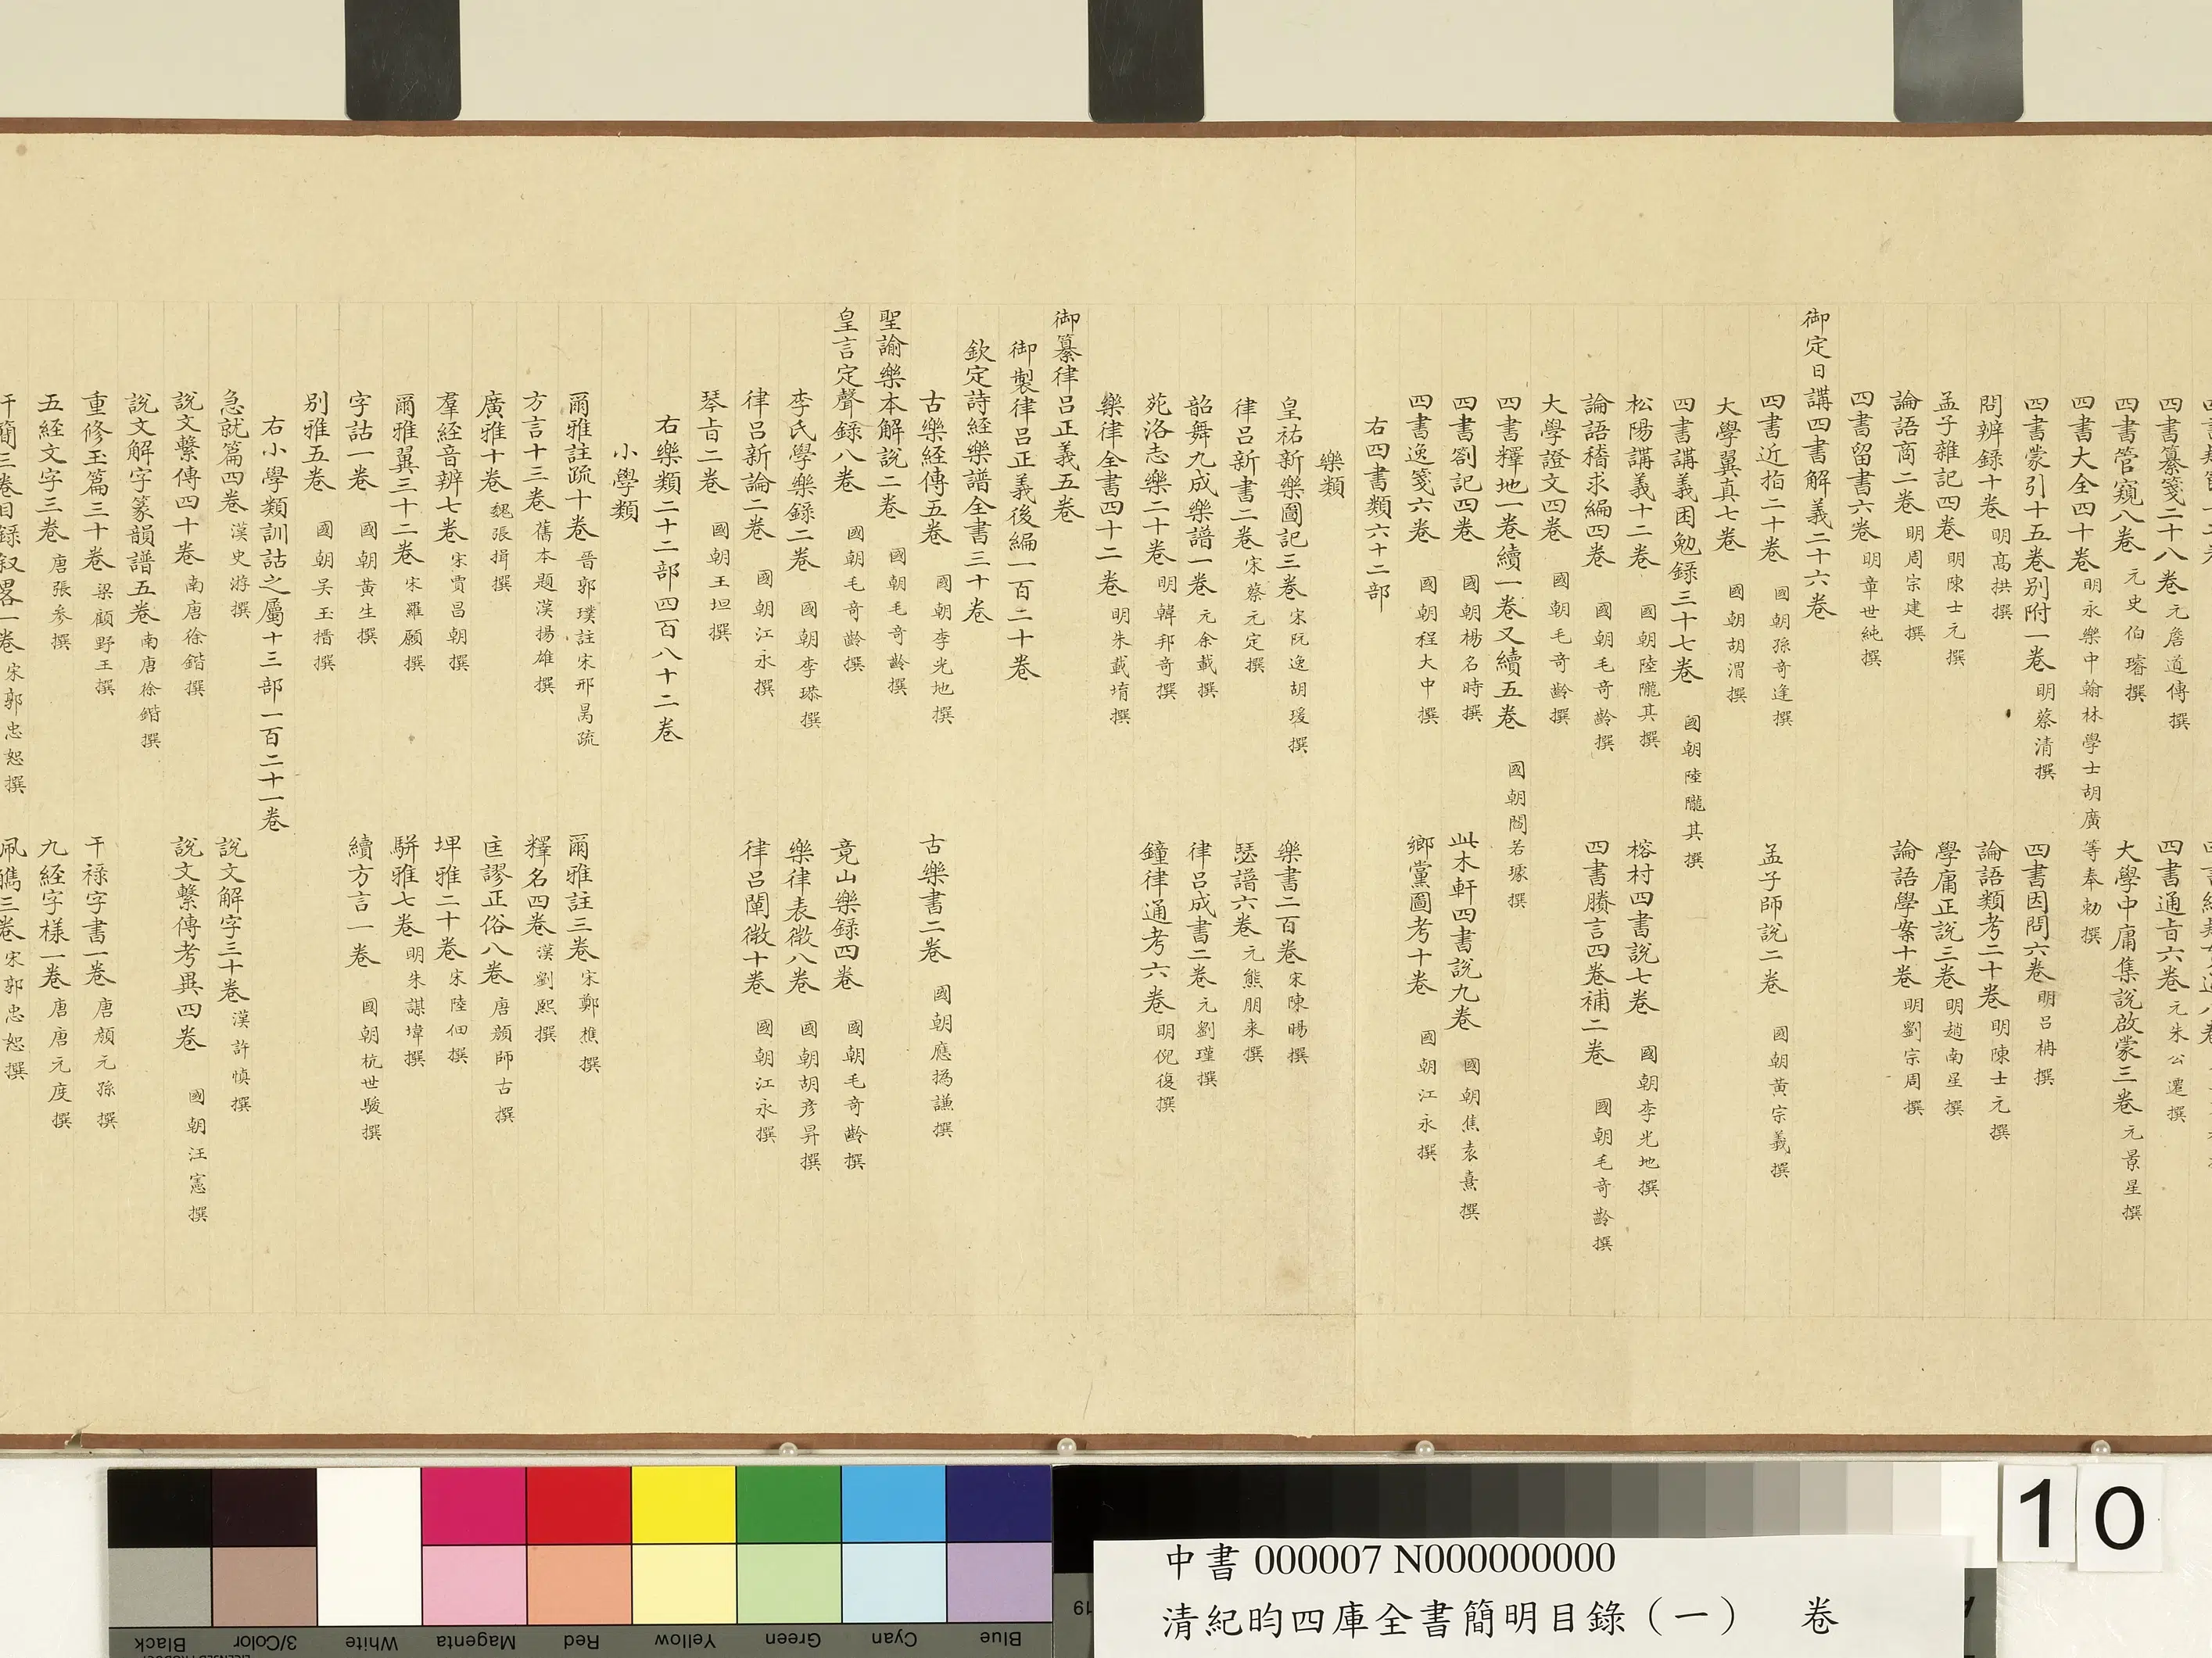 四書纂箋二十八卷 元詹道傳撰 四書通旨六卷 元朱公遷撰
四書管窺八卷 元史伯璿撰 大學中庸集說啟蒙三卷 元景星撰
四書大全四十卷 明永樂中翰林學士胡廣等奉勅撰
四書蒙引十五卷別附一卷 明蔡清撰 四書因問六卷 明呂柟撰
問辨録十卷 明髙拱撰 論語類考二十卷 明陳士元撰
孟子雜記四卷 明陳士元撰 學庸正說三卷 明趙南星撰
論語商二卷 明周宗建撰 論語學案十卷 明劉宗周撰
四書留書六卷 明章世純撰
御定日講四書解義二十六卷
四書近指二十卷 國朝孫奇逢撰 孟子師說二卷 國朝黃宗羲撰
大學翼真七卷 國朝胡渭撰
四書講義困勉錄三十七卷 國朝陸隴其撰
松陽講義十二卷 國朝陸隴其撰 榕村四書說七卷 國朝李光地撰
論語稽求編四卷 國朝毛奇齡撰 四書賸言四卷補二卷 國朝毛奇齡撰
大學證文四卷 國朝毛奇齡撰
四書釋地一卷續一卷又續五卷 國朝閻若璩撰
四書劄記四卷 國朝楊名時撰 此木軒四書說九卷 國朝焦袁熹撰
四書逸箋六卷 國朝程大中撰 鄉黨圖考十卷 國朝江永撰
右四書類六十二部
樂類
皇祐新樂圖記三卷 宋阮逸胡瑗撰 樂書二百卷 宋陳暘撰
律呂新書二卷 宋蔡元定撰 瑟譜六卷 元熊朋来撰
韶舞九成樂譜一卷 元余載撰 律呂成書二卷 元劉瑾撰
苑洛志樂二十卷 明韓邦奇撰 鐘律通考六卷 明倪復撰
樂律全書四十二卷 明朱載堉撰
御纂律呂正義五卷
御製律呂正義後編一百二十卷
欽定詩経樂譜全書三十卷
古樂経傳五卷 國朝李光地撰 古樂書二卷 國朝應撝謙撰
聖諭樂本解說二卷 國朝毛奇齡撰
皇言定聲錄八卷 國朝毛奇齡撰 竟山樂錄四卷 國朝毛奇齡撰
李氏學樂錄二卷 國朝李塨撰 樂律表微八卷 國朝胡彥昇撰
律呂新論二卷 國朝江永撰 律呂闡微十卷 國朝江永撰
琴旨二卷 國朝王坦撰
右樂類二十二部四百八十二卷
小學類
爾雅註疏十卷 晉郭璞註宋邢昺疏 爾雅註三卷 宋鄭樵撰
方言十三卷 舊本題漢揚雄撰 釋名四卷 漢劉熙撰
廣雅十卷 魏張揖撰 匡謬正俗八卷 唐顏師古撰
羣経音辨七卷 宋賈昌朝撰 埤雅二十卷 宋陸佃撰
爾雅翼三十二卷 宋羅願撰 駢雅七卷 明朱謀㙔撰
字詁一卷 國朝黃生撰 續方言一卷 國朝杭世駿撰
別雅五卷 國朝吴玉搢撰
右小學類訓詁之屬十三部一百二十一卷
急就篇四卷 漢史游撰 說文解字三十卷 漢許慎撰
說文繫傳四十卷 南唐徐鍇撰 說文繫傳考異四卷 國朝汪憲撰
說文解字篆韻譜五卷 南唐徐鍇撰
重修玉篇三十卷 梁顧野王撰 干祿字書一卷 唐顏元孫撰
五経文字三卷 唐張參撰 九経字樣一卷 唐唐元度撰
汗簡三卷目錄叙畧一卷 宋郭忠恕撰 佩觿三卷 宋郭忠恕撰
10
中書 000007 N000000000
清紀昀四庫全書簡明目錄（一） 卷
Black
3/Color
White
Magenta
Red
Yellow
Green
Cyan
Blue
19